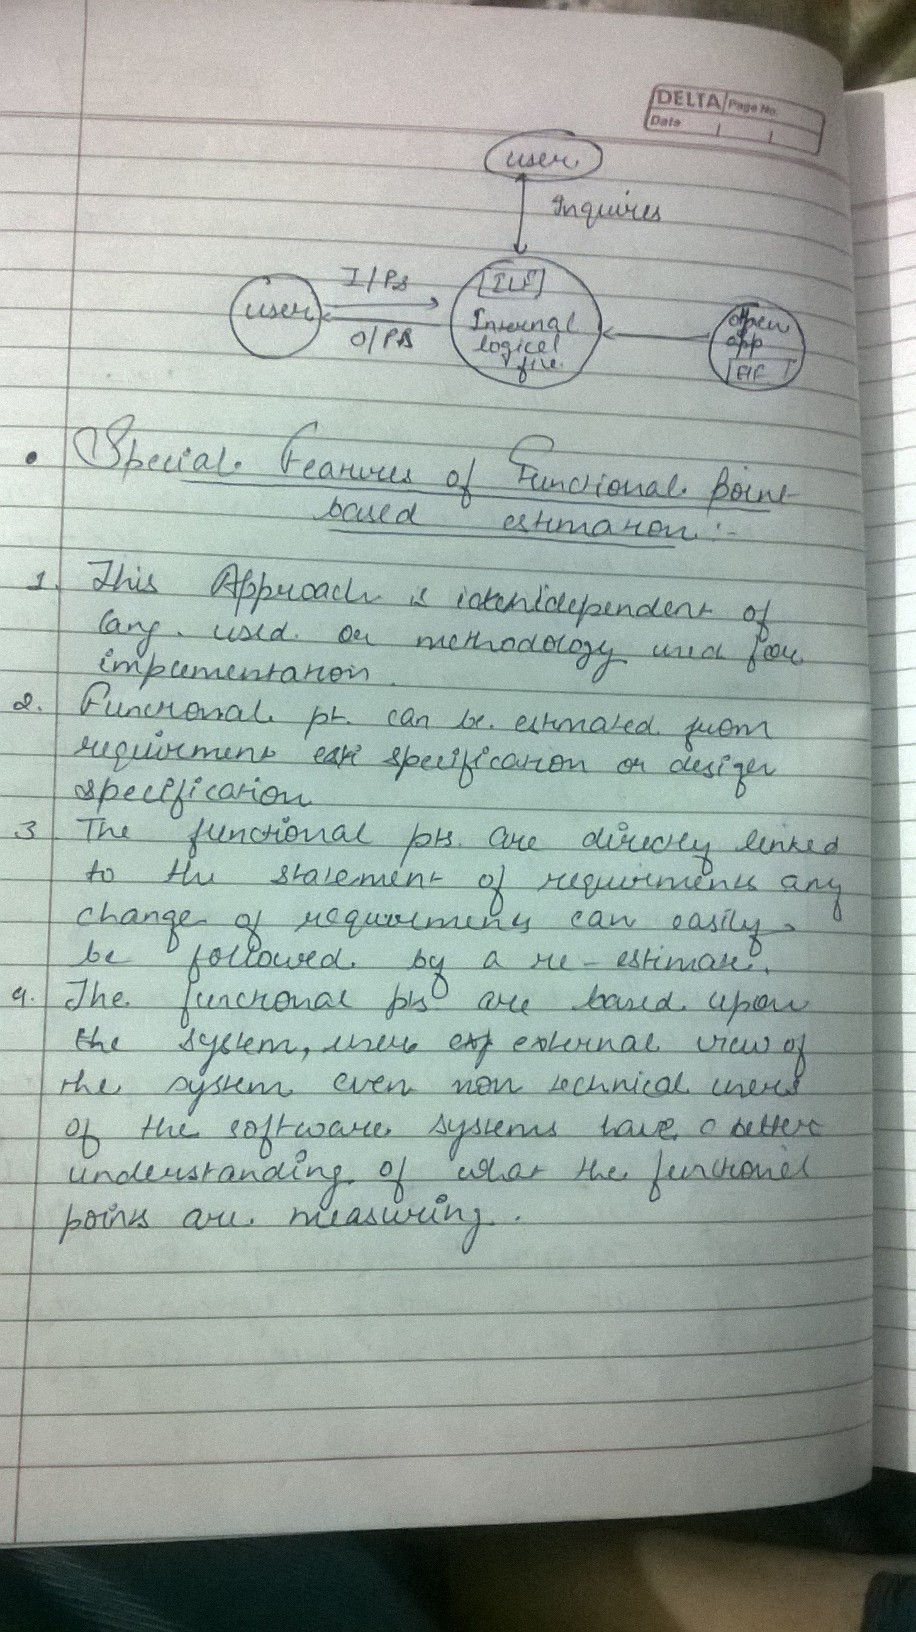 DELTA Page No.
Date / /
user
Inquires
I/Ps
user
O/Ps
[ILF]
Internal
logical
file.
app
EIF
• Special Features of Functional Point
based estimation :-
1. This Approach is independent of
lang. used or methodology used for
implementation.
2. Functional pt. can be estimated from
requirment specification or design
specification
3 The functional pts. are directly linked
to the statement of requirments any
change of requirments can easily
be followed by a re-estimate.
4. The functional pts are based upon
the system, users external view of
the system even non technical users
of the software systems have a better
understanding of what the functional
points are measuring.